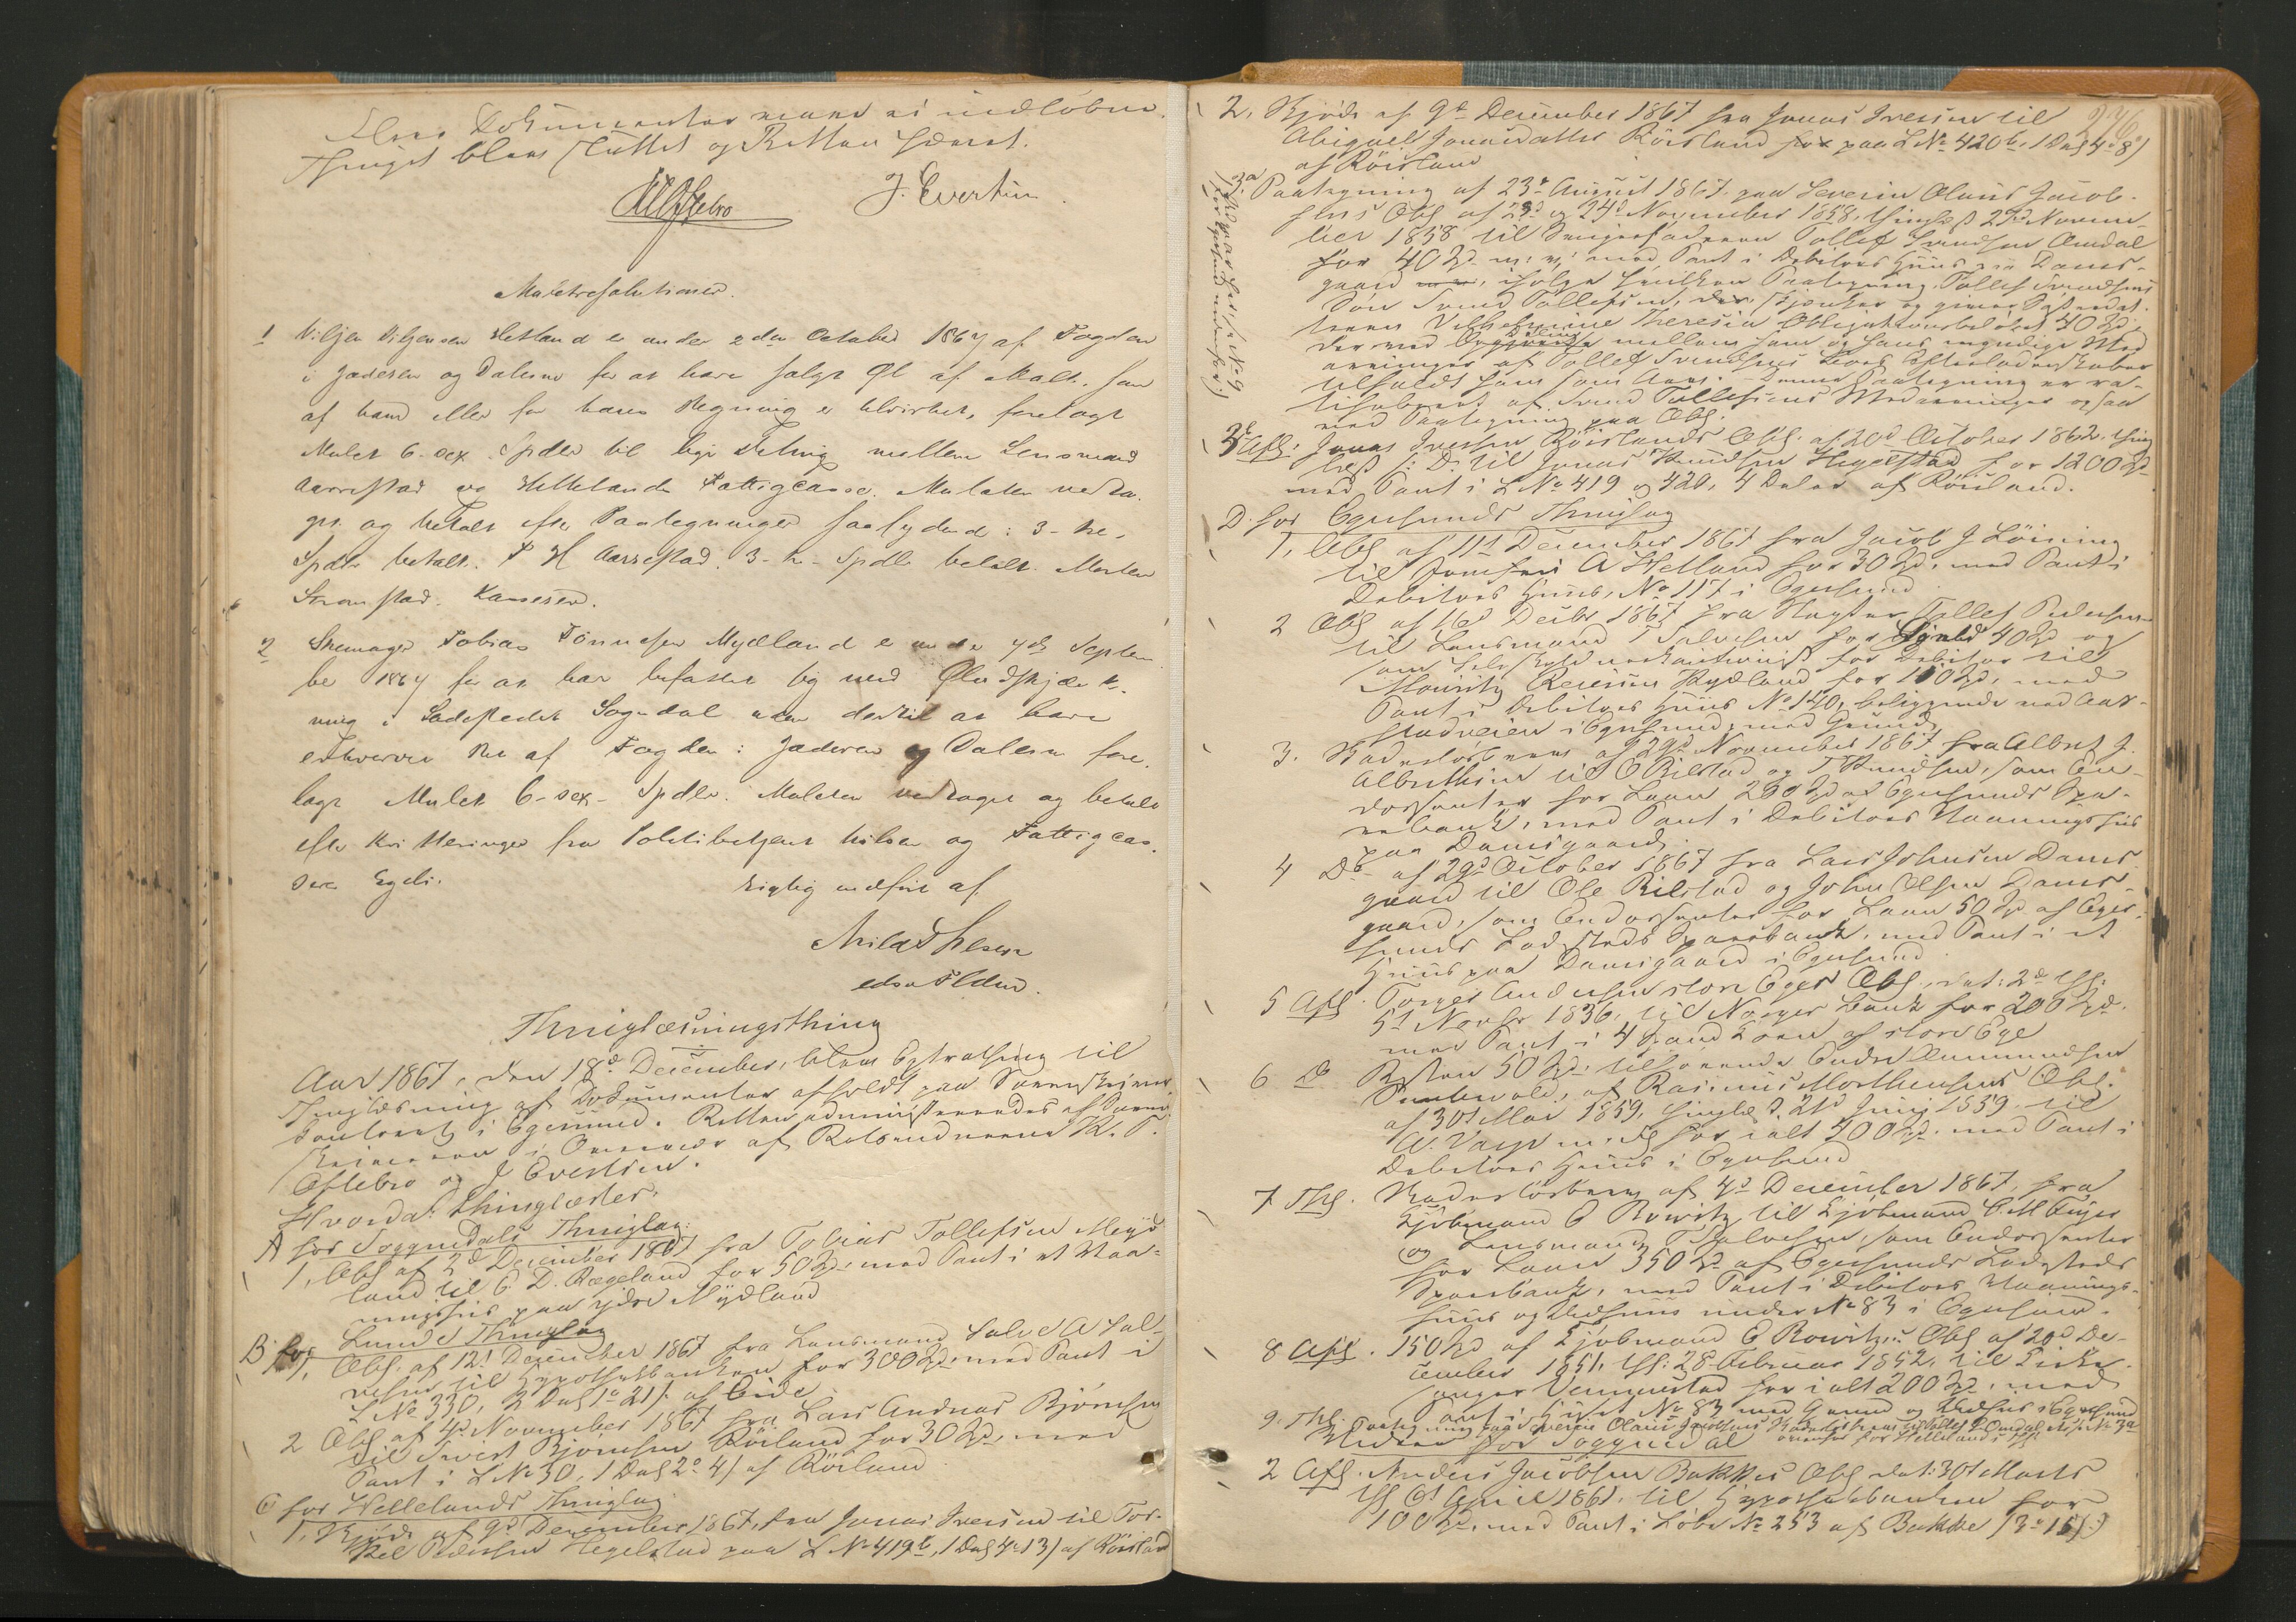 Flere Dokumenter vare ei indløbne.
Thinget blev sluttet og Retten hævet.
J. Evertsen
Mulctresolutioner.
1 Viljen Viljensen Hetland er under 2den October 1867 af Fogden
i Jæderen og Dalerne for at have solgt Øl af Malt, som
af ham eller for hans Regning er tilvirket, forelagt
Mulct 6-sex Spdlr til lige Deling mellem Lensmand
Aarrestad og Hellelands Fattigcasse. Mulcten vedta-
gen og betalt efter Paategninger saalydende: 3-tre-
Spdlr betalt. T H Aarrestad. 3-tre-Spdlr betalt. Morten
Strømstad. Kasserer.
2 Skomager Tobias Tønnesen Mydland er under 7de Septem
ber 1867 for at have befattet sig med Øludskjænk-
ning i Ladestedet Sogndal uden dertil at have
erhvervet Ret af Fogden i Jæderen og Dalerne fore-
lagt Mulct 6-sex-Spdlr. Mulcten vedtaget og betalt
efter Kvitteringer fra Politibetjent Nilsen og Fattigcas-
serer Egeli.
Rigtig udført af
Thinglæsningsthing
Aar 1867, den 18d December, blev Extrathing til
Thinglæsning af Dokumenter afholdt paa Sorenskriver
Contoiret i Egersund. Retten administreredes af Soren
skriveren i Overvær af Retsvidnerne K. T.
Eftebrø og J Evertsen.
Hvorda thinglæstes:
A for Soggendals Thinglag:
1, Obl af 2d December 1867 fra Tobias Tollefsen Myd
land til C D. Regeland for 50 Spd. med Pant i et Vaa-
ningshus paa ydre Mydland
B for Lunds Thinglag
1, Obl. af 12t December 1867 fra Lensmand Salve A Sal-
vesen til Hypothekbanken for 300 Spd. med Pant i
L No 330, 2 Dal 1o 21/ af Eide
2 Obl af 4d November 1867 fra Lars Andreas Bjørnsen
til Sivert Bjørnsen Røiland for 30 Spd, med
Pant i L No 30, 1 Dal 2o 4/ af Röiland
C for Hellelands Thinglag
1. Skjøde af 9d December 1867, fra Jonas Iversen til Tor-
kel Pedersen Hegelstad paa L No 419b, 1 Dal 4o 13/ af Röisland
236
2. Skjøde af 9d December 1867 fra Jonas Iversen til
Abigael Jonasdatter Röisland for paa L No 420b, 1 Dal 4o 8/
af Röisland
3a Paategning af 23d August 1867 paa Severin Olaus Jacob-
sens Obl af 23d og 24d November 1858, thinglæst 27d Novem-
ber 1858 til Tollef Svendsen Omdal
for 40 Spd m: v: med Pant i Debitors Huus paa Dams-
gaard , ifølge hvilken Paategning Tollef Svendsens
Søn Svend Tollefsen, der, skjænker og giver
Vilhelmine Theresia Obligationsbeløbet 40 Spd,
der ved Deling mellem ham og hans myndige Med
arvinger af Tollef Svendsens Efterladenskaber
tilfaldt ham som Arv. – Denne Paategning er ra-
tihaberet af Svend Tollefsens Medarvinger ogsaa
ved Paategning paa Obl.
3b Afl: Jonas Iversen Röislands Obl. af 20d October 1862, thing
læst s: D: til Jonas Knudsen Hegelstad for 1200 Spd
med Pant i L No 419 og 420, 4 Daler af Röisland.
D. for Egersunds Thinglag
1, Obl af 11t December 1867 fra Jacob J Löining
til Jomfru A Helland for 30 Spd, med Pant i
Debitors Huus, No 117 i Egersund
2 Obl af 16d Decbr 1867 fra Tollef Pedersen
til Lensmand T Salvesen for Gjeld 40 Spd og
som Selvskyldnerkautionist for Debitor til
Mouritz Reiersen Rydland for 110 Spd, med
Pant i Debitors Huus No 140, beliggende ved Aar-
stadveien i Egersund, med Grund
3. Skadesløsbrev af 29d November 1867 fra Albret J.
Albretsen til O Rilstad og T Knudsen, som En-
dossenter for Laan 200 Spd af Egersunds Spa-
rebank, med Pant i Debitors Vaaningshus
paa Damsgaard
4 Do af 29d October 1867 fra Lars Johnsen Dams-
gaard til Ole Rilstad og John Olsen Dams-
gaard, som Endossenter for Laan 50 Spd af Eger-
sunds Ladesteds Sparebank, med Pant i et
Huus paa Damsgaard i Egersund
5 Afl. Torger Andersen store Eges Obl, dat: 2d thl:
5t Novbr 1836, til Norges Bank for 200 Spd.
med Pant i 4 Spand Korn af store Ege
6 do Resten 50 Spd. tilhørende Endre Ammundsen
af Rasmus Morthensens Obl.
af 30t Mai 1859, thinglæst 21d Juni 1859 til
for ialt 400 Spd. med Pant i
Debitors Huus i Egersund
7 Thl. Skadesløsbrev af 4d December 1867, fra
Kjøbmand C Rowitz til Kjøbmand C M Feyer
og Lensmand T Salvesen, som Endossenter
for Laan 350 Spd af Egersunds Ladesteds
Sparebank, med Pant i Debitors Vaanings-
huus og Udhuus under No 83 i Egersund.
8 Afl. 150 Spd af Kjøbmand C Rowitz's Obl af 20d De-
cember 1851, thl: 28 Februar 1852, til
for ialt 200 Spd, med
Pant i Huset No 83 med Grund og Udhuus i Egersund
9. Thl.
Videre for Soggendal
2 Afl. Anders Jacobsen Bakkes Obl dat: 30t Marts
thl 6t April 1861. til Hypothekbanken for
100 Spd, med Pant i Løbe No 253 af Bakke /3o 15/.)